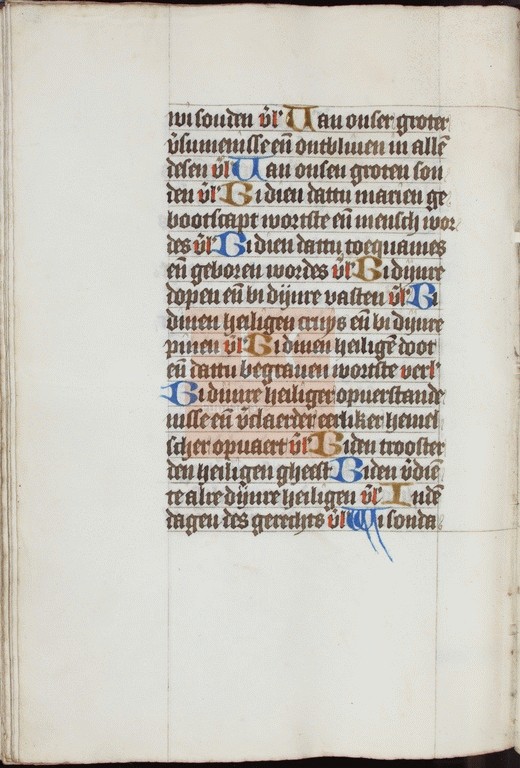 wi souden v̄l' Uan onser groter
v̄sumenisse en̄ ontbliuen in allē
desen v̄l' Uan onsen groten son
den v̄l' Bi dien dattu marien ge
bootscapt wortste en̄ mensch wor
des v̄l' Bi dien dattu toequames
en̄ geboren wordes v̄l' Bi dijnre
dopen en̄ bi dijnre vasten v̄l' Bi
dinen heiligen cruys en̄ bi dijnre
pinen v̄l' Bi dinen heiligē doot
en̄ dattu begrauen wortste verl'
Bi dinre heiliger opuerstande
nisse en̄ v̄claerder eerliker hemel
scher opuaert v̄l' Bi den trooster
den heiligen gheest Bi den v̄diē
te alre dijnre heiligen v̄l' In dē
dagen des gerechts v̄l' Wi sonda